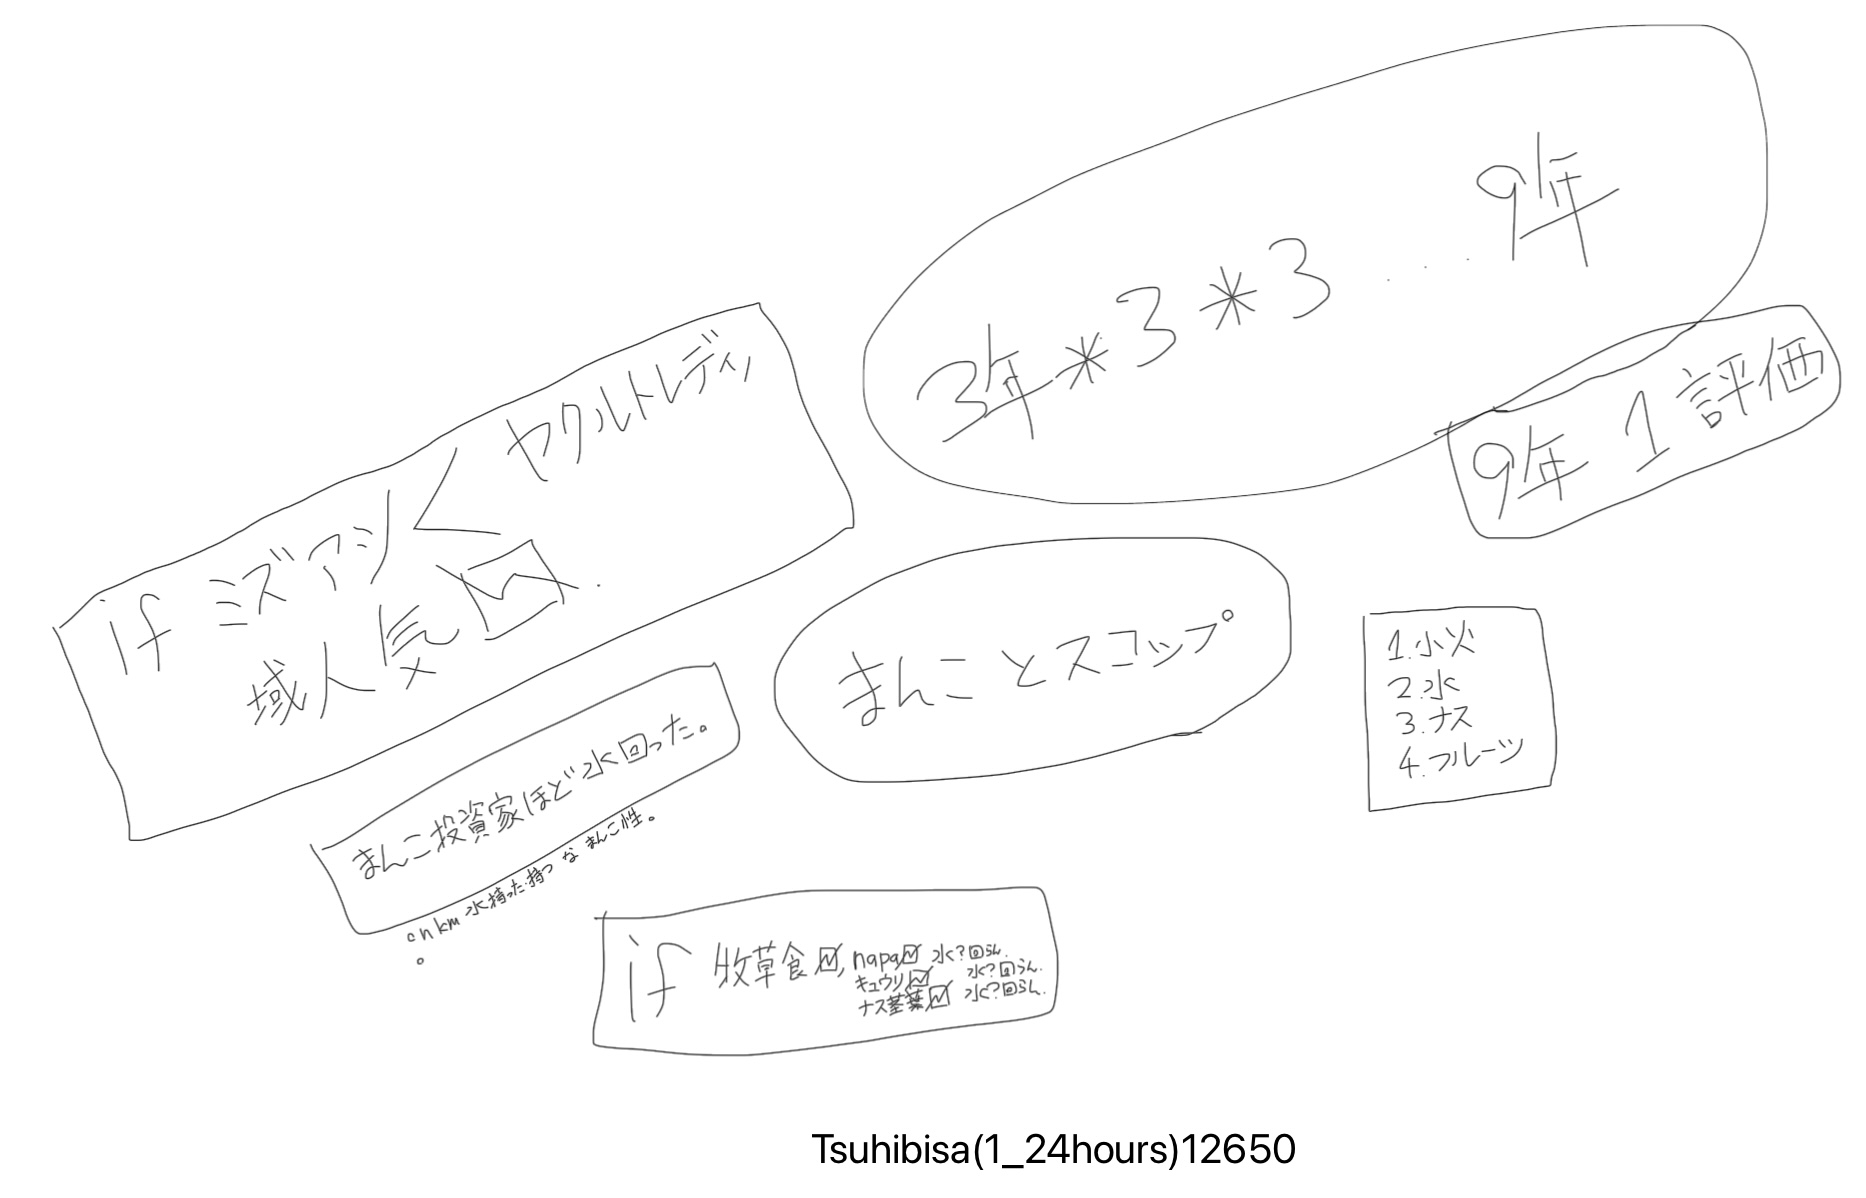 3年*3*3....9年
9年 1評価
if ミズアシ<ヤクルトレディ
域人気☑.
まんことスコップ
1.小火
2.水
3.ナス
4.フルーツ
まんこ投資家ほど水回った。
cnkm水持った持つなまんこ性。
if 牧草食☑, napa☑ 水?回らん.
キュウリ☑ 水?回らん.
ナス茎葉☑ 水?回らん.
Tsuhibisa(1_24hours)12650